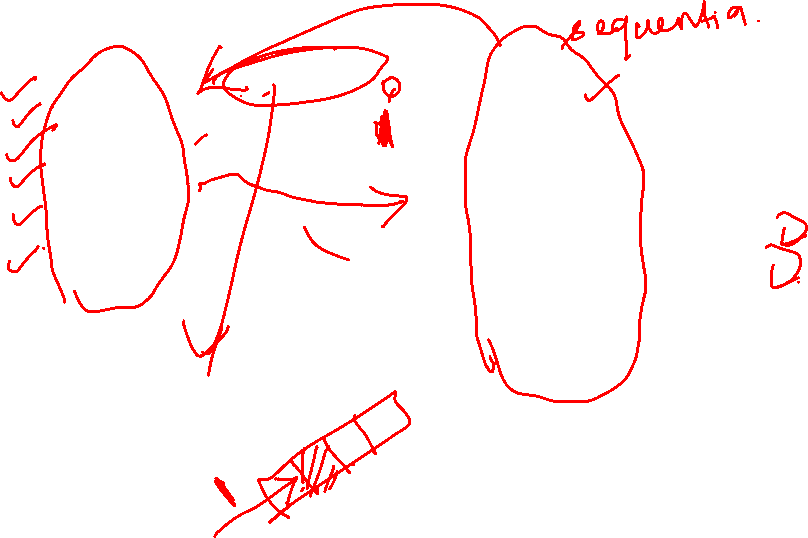 sequentia.
D
D